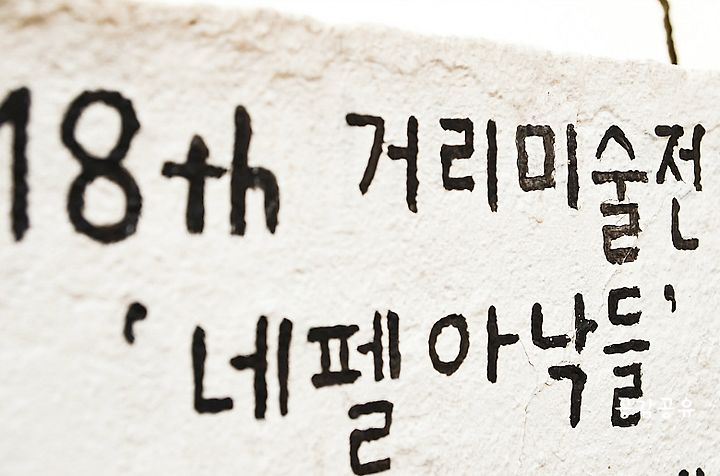 18th 거리미술전
'네펠아낙들'